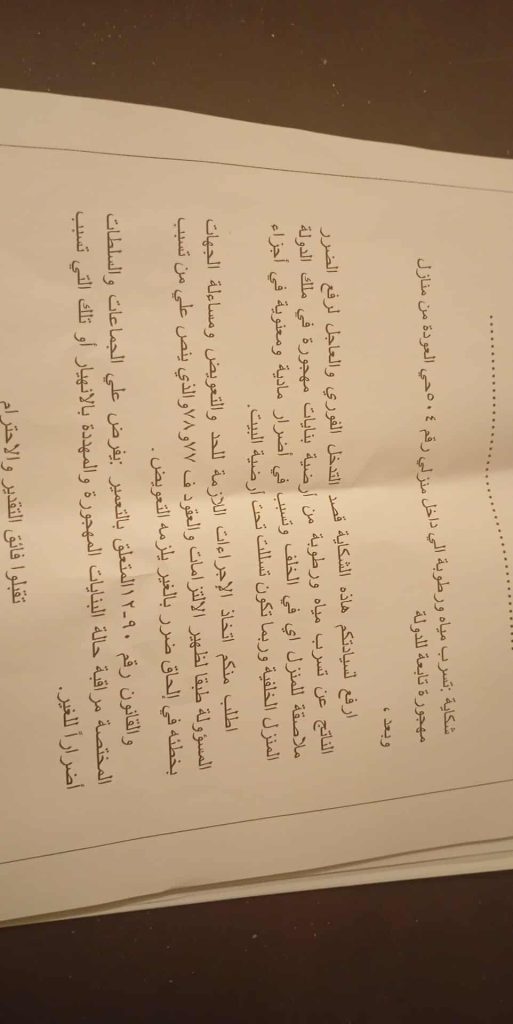 شكاية :تسرب مياه ورطوبة الي داخل منزلي رقم ٥٠٤حي العودة من منازل
مهجورة تابعة للدولة
وبعد ،
ارفع لسيادتكم هاذه الشكاية قصد التدخل الفوري والعاجل لرفع الضرر
الناتج عن تسرب مياه ورطوبة من أرضية بنايات مهجورة في ملك الدولة
ملاصقة للمنزل اي في الخلف وتسبب في أضرار مادية ومعنوية في أجزاء
المنزل الخلفية وربما تكون تسللت تحت أرضية البيت.
اطلب منكم اتخاذ الإجراءات اللازمة للحد والتعويض ومساءلة الجهات
المسؤولة طبقا لظهير الالتزامات والعقود ف ٧٧و٧٨والذي ينص علي من تسبب
بخطئه في إلحاق ضرر بالغير يلزمه التعويض.
والقانون رقم ٩٠-١٢المتعلق بالتعمير :يفرض علي الجماعات والسلطات
المختصة مراقبة حالة البنايات المهجورة والمهددة بالانهيار أو تلك التي تسبب
أضراراً للغير.
تقبلوا فائق التقدير والاحترام